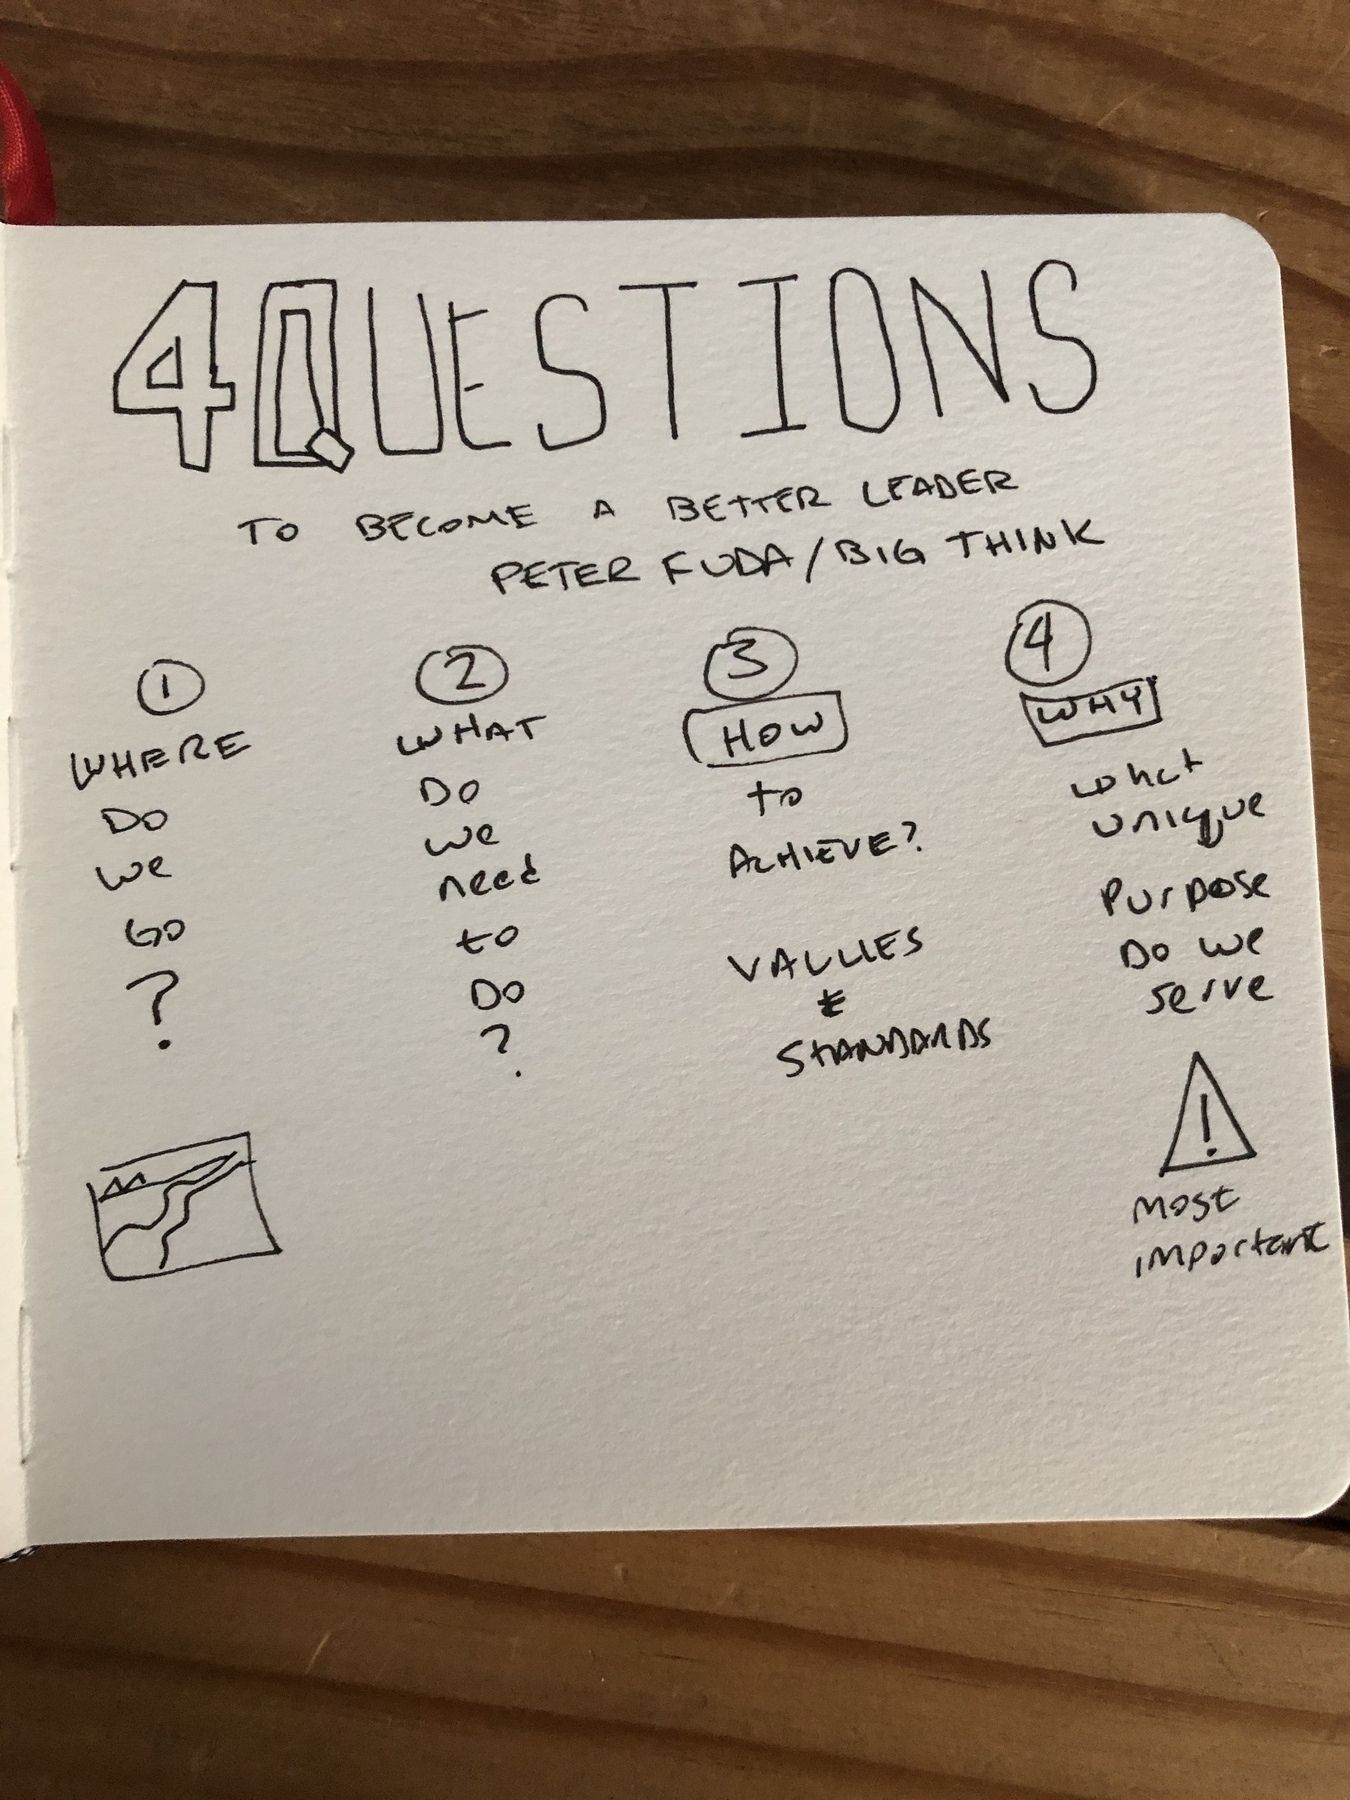 4QUESTIONS
TO BECOME A BETTER LEADER
PETER FUDA/BIG THINK
1
WHERE
DO
we
GO
?
2
WHAT
DO
we
need
to
DO
?
3
HOW
to
ACHIEVE?
VALUES
&
STANDARDS
4
WHY
what
unique
Purpose
DO we
serve
!
most
important